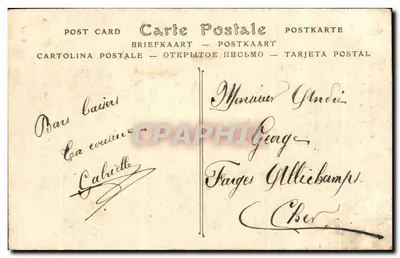 POST CARD Carte Postale POSTKARTE
BRIEFKAART — POSTKAART
CARTOLINA POSTALE — ОТКРЫТОЕ ПИСЬМО — TARJETA POSTAL
Bons baisers
Ta cousine
Gabrielle
Monsieur André
George
Farges Allichamps
Cher
CPAPHIL